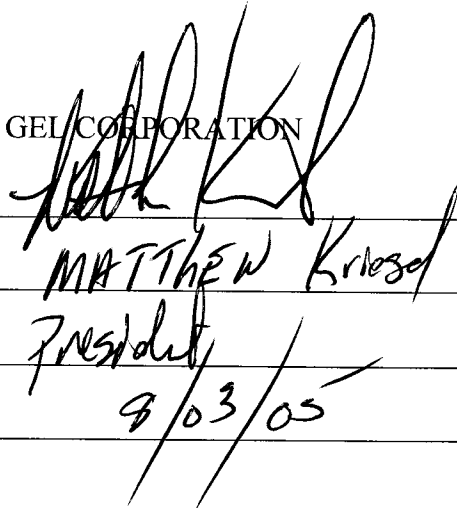 GEL CORPORATION
MATTHEW Kriegel
President
8/03/05